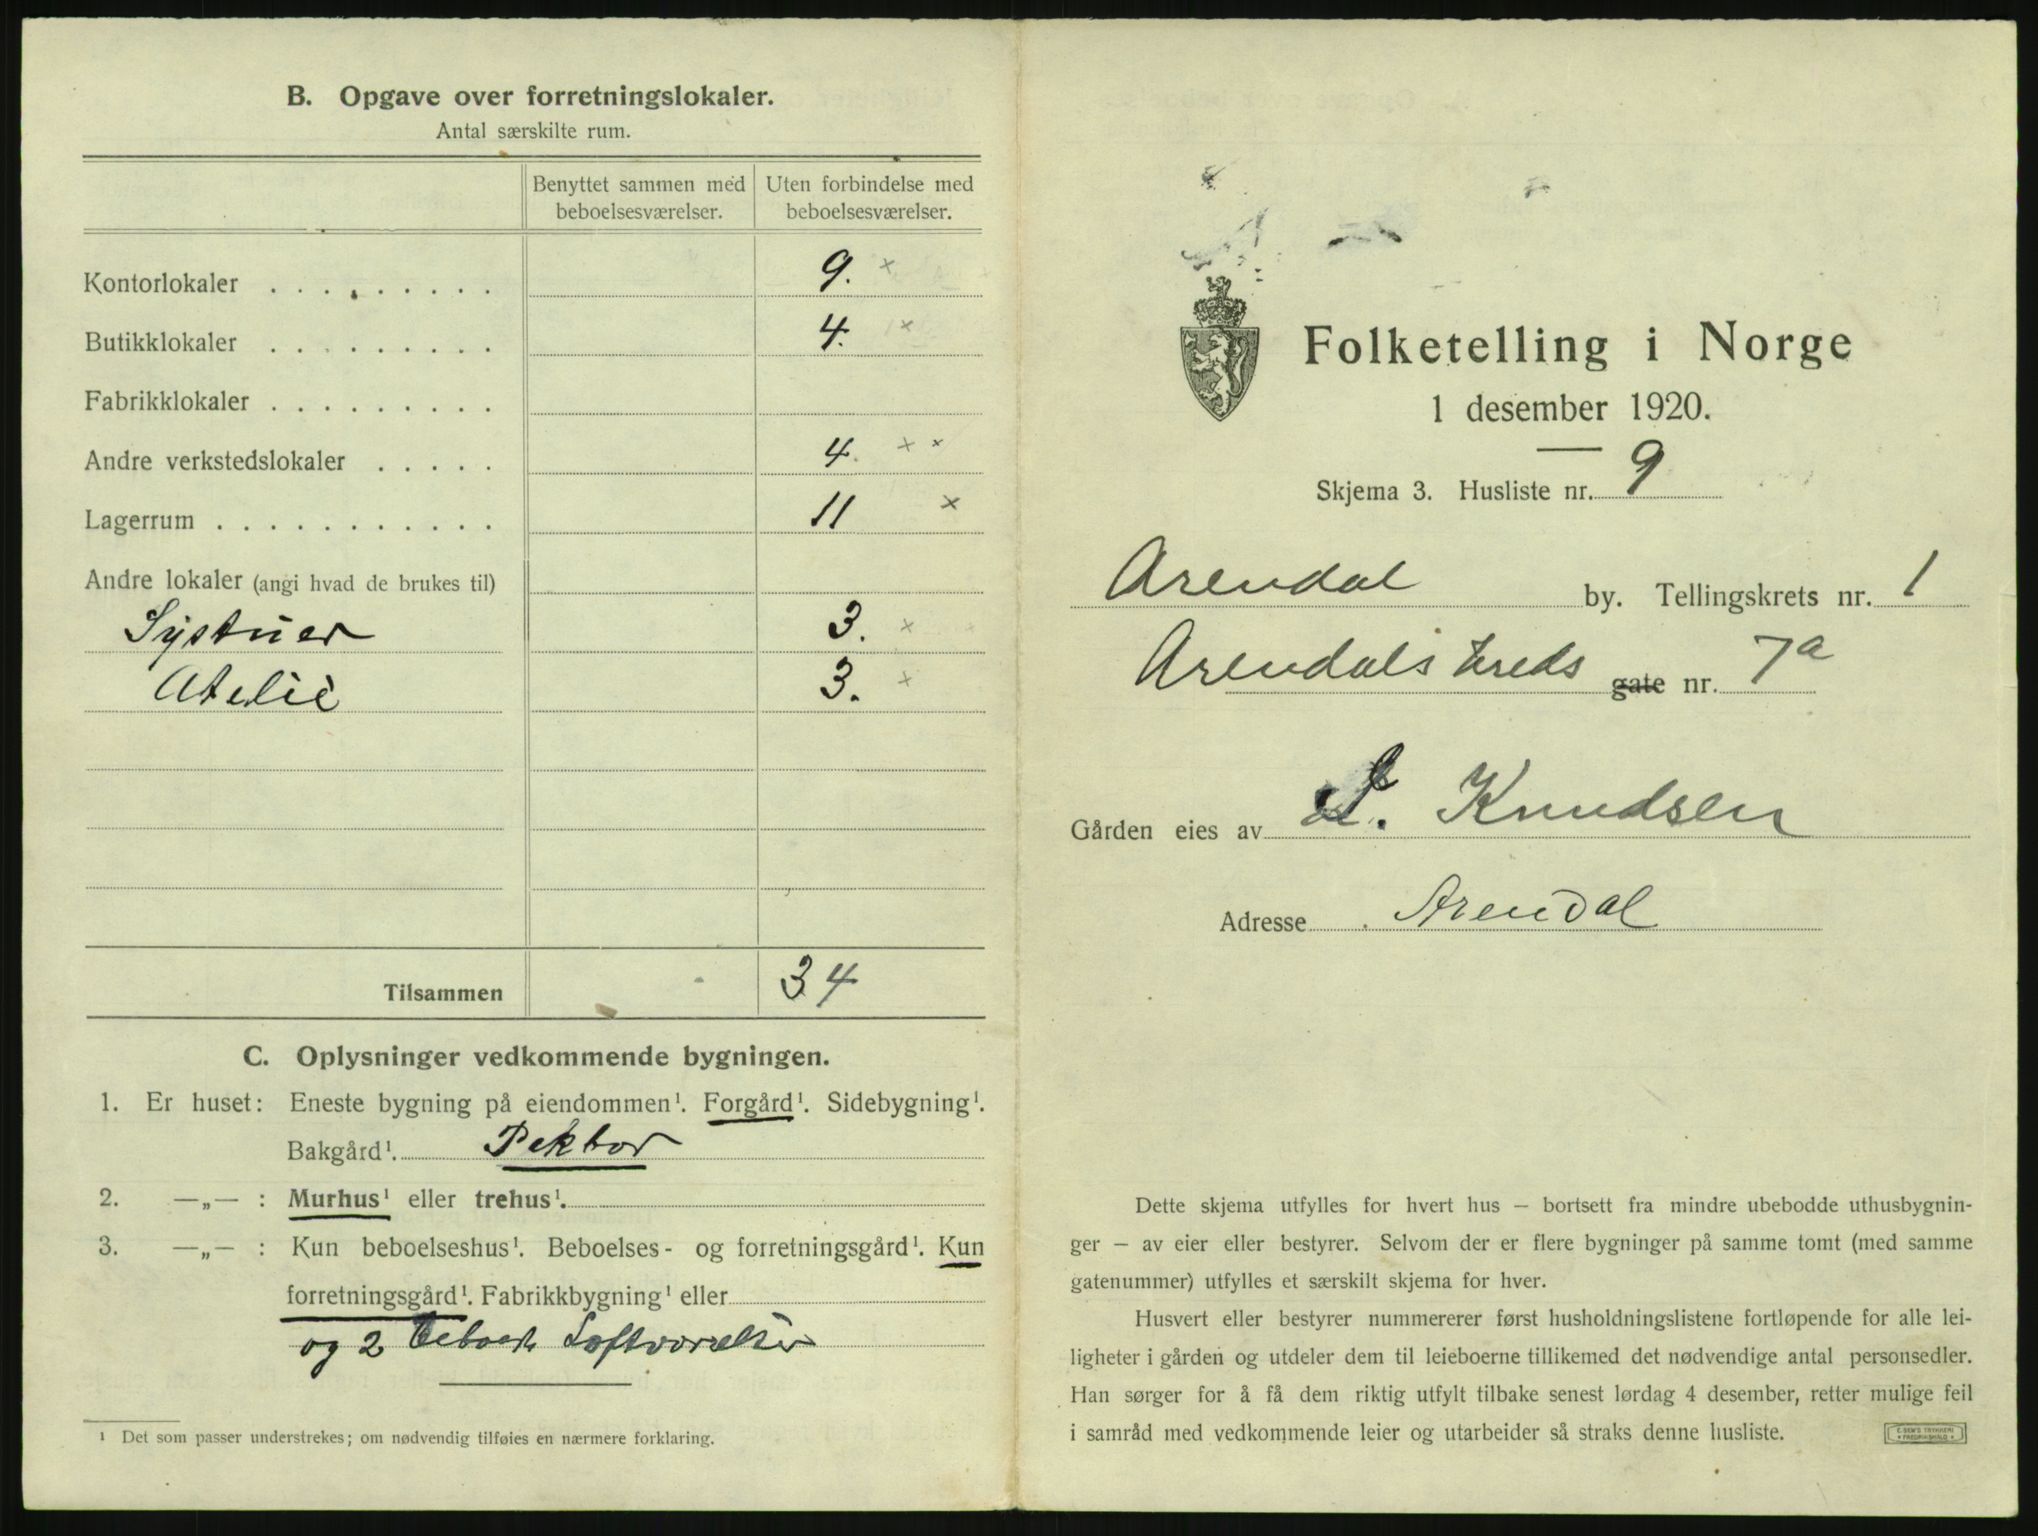 B. Opgave over forretningslokaler.
Antal særskilte rum.
Benyttet sammen med beboelsesværelser.
Uten forbindelse med beboelsesværelser.
Kontorlokaler . . . . . . . . . 9. ×
Butikklokaler . . . . . . . . . 4. ×
Fabrikklokaler . . . . . . . . .
Andre verkstedslokaler . . . . . 4. × ×
Lagerrum . . . . . . . . . . . 11 ×
Andre lokaler (angi hvad de brukes til)
Systuer 3. ×
Atelie 3. ×
Tilsammen 34
C. Oplysninger vedkommende bygningen.
1. Er huset: Eneste bygning på eiendommen¹. Forgård¹. Sidebygning¹.
Bakgård¹.
2. —„— : Murhus¹ eller trehus¹.
3. —„— : Kun beboelseshus¹. Beboelses- og forretningsgård¹. Kun
forretningsgård¹. Fabrikkbygning¹ eller
og 2 beboede Loftværelser
¹ Det som passer understrekes; om nødvendig tilføies en nærmere forklaring.
Folketelling i Norge
1 desember 1920.
Skjema 3. Husliste nr. 9
Arendal by. Tellingskrets nr. 1
Arendals treds gate nr. 7a
Gården eies av L. Knudsen
Adresse Arendal
Dette skjema utfylles for hvert hus – bortsett fra mindre ubebodde uthusbygnin-
ger – av eier eller bestyrer. Selvom der er flere bygninger på samme tomt (med samme
gatenummer) utfylles et særskilt skjema for hver.
Husvert eller bestyrer nummererer først husholdningslistene fortløpende for alle lei-
ligheter i gården og utdeler dem til leieboerne tillikemed det nødvendige antal personsedler.
Han sørger for å få dem riktig utfylt tilbake senest lørdag 4 desember, retter mulige feil
i samråd med vedkommende leier og utarbeider så straks denne husliste.